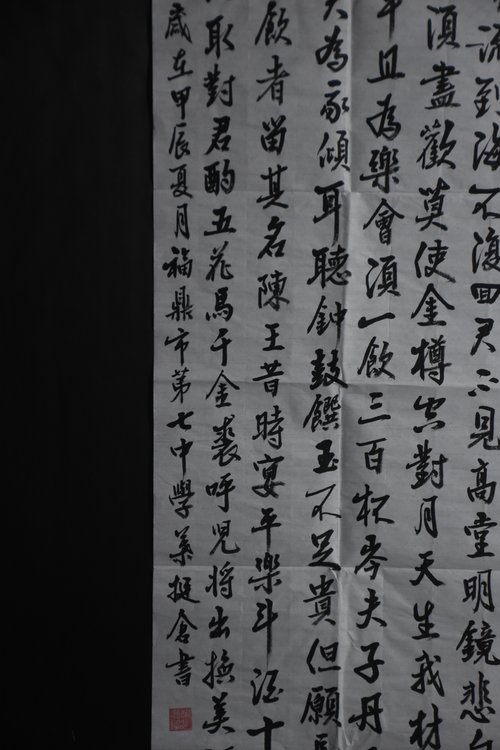 流到海不復回君不見高堂明鏡悲白
須盡歡莫使金樽空對月天生我材
牛且為樂會須一飲三百杯岑夫子丹
為我傾耳聽鐘鼓饌玉不足貴但願
飲者留其名陳王昔時宴平樂斗酒十
取對君酌五花馬千金裘呼兒將出換美
歲在甲辰夏月福鼎市第七中學葉挺倉書